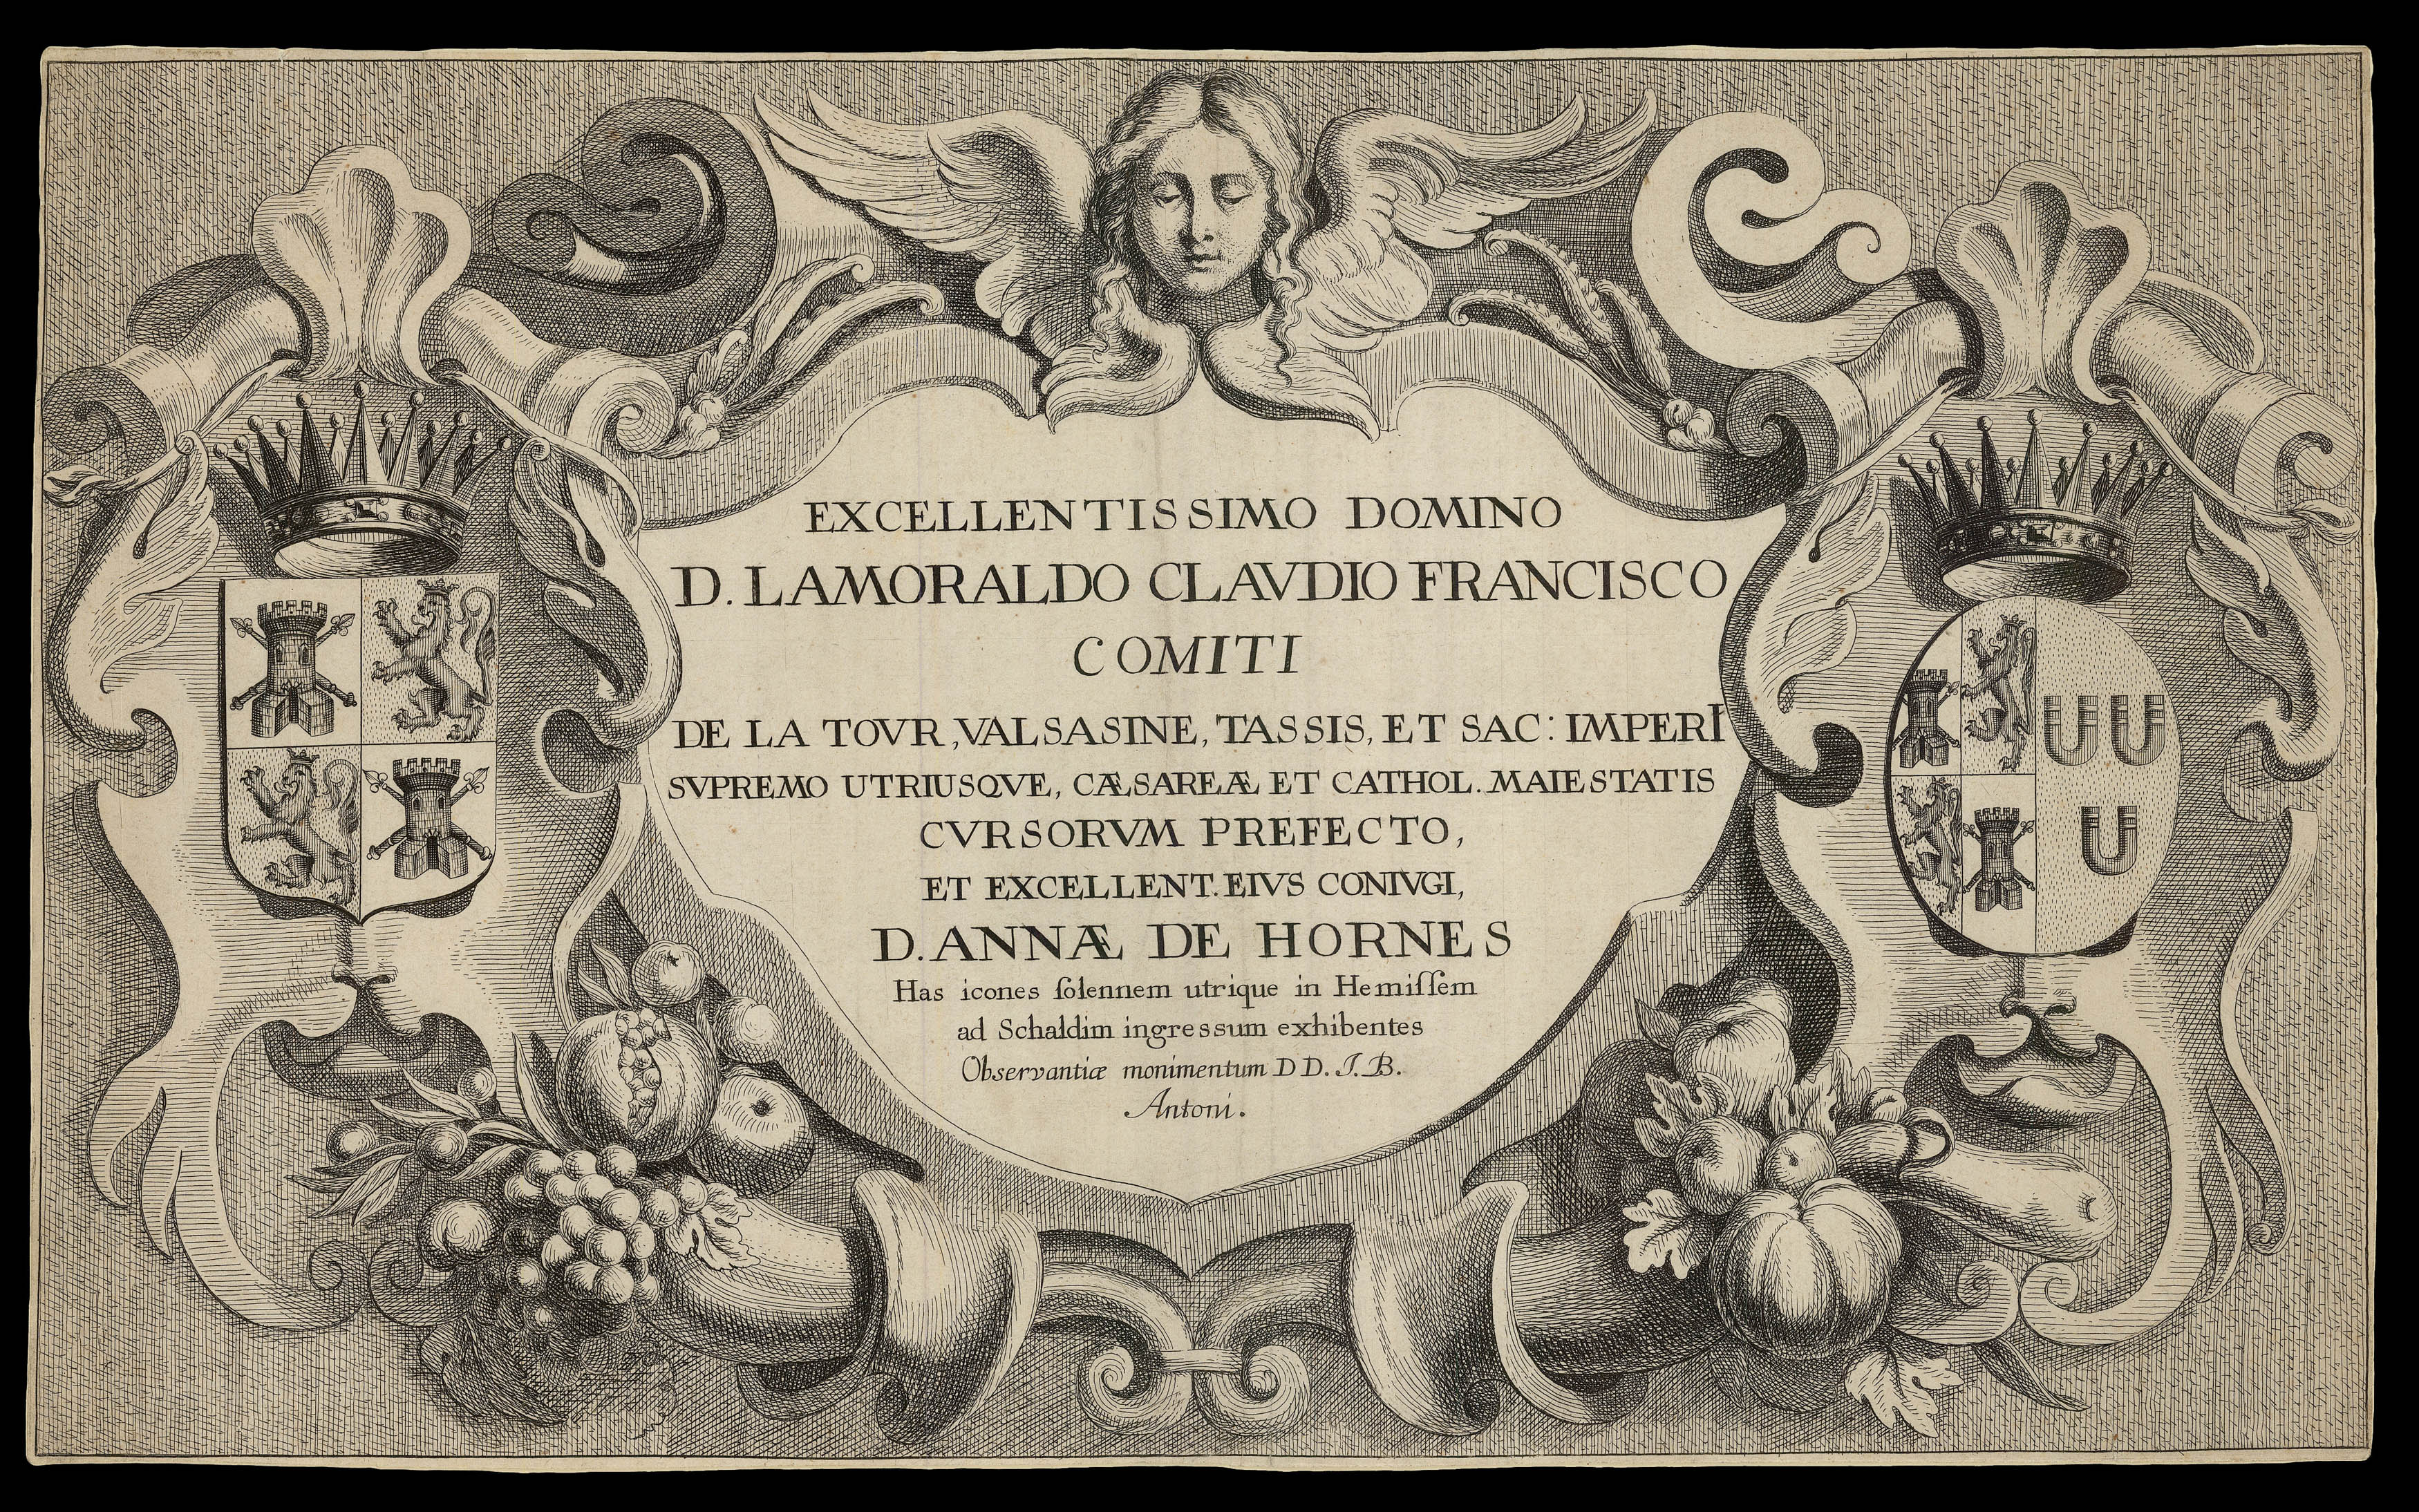 EXCELLENTISSIMO DOMINO
D. LAMORALDO CLAVDIO FRANCISCO
COMITI
DE LA TOVR, VALSASINE, TASSIS, ET SAC: IMPERÏ
SVPREMO UTRIUSQVE, CÆSAREÆ ET CATHOL. MAIESTATIS
CVRSORVM PREFECTO,
ET EXCELLENT. EIVS CONIVGI,
D. ANNÆ DE HORNES
Has icones ſolennem utrique in Hemiſſem
ad Schaldim ingressum exhibentes
Observantiæ monimentum D D. J. B.
Antoni.